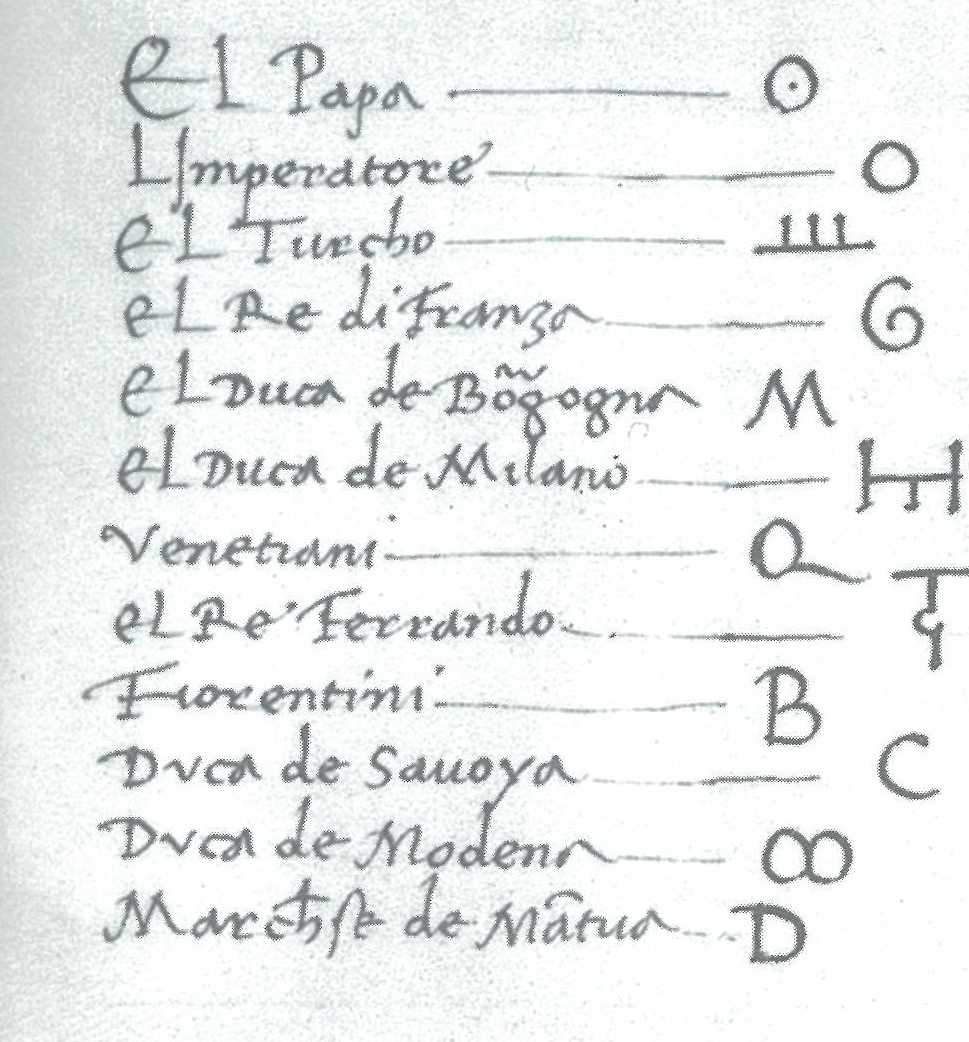 El Papa ☉
L Imperatore O
el Turcho
el Re di Franza G
el Duca de Bõgogna M
el Duca de Milano
Venetiani Q
el Re Ferrando
Fiorentini B
Dvca de Sauoya C
Dvca de Modena 8
Marchese de Mãtua D